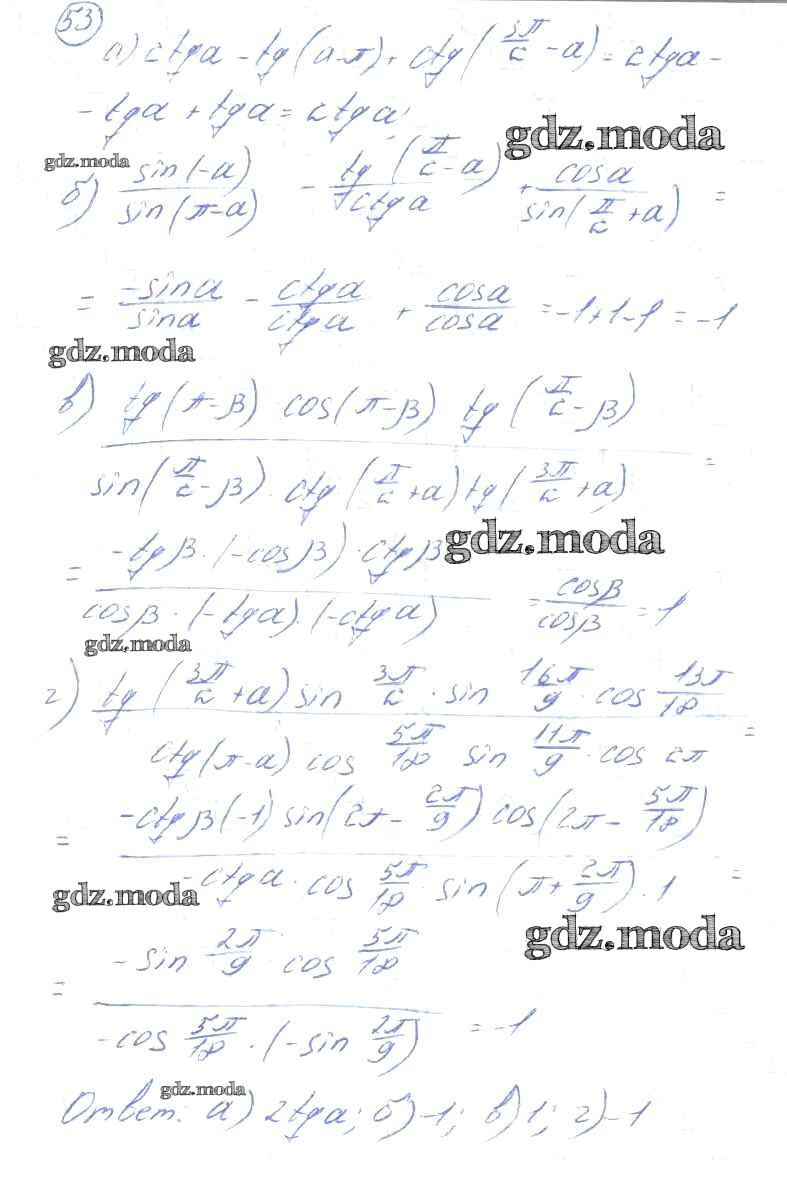 53
а) 2tga - tg(a-π) + ctg(3π/2 - a) = 2tga -
- tga + tga = 2tga
gdz.moda
gdz.moda
б) sin(-a)/sin(π-a) - tg(π/2 - a)/ctga + cosa/sin(π/2 + a) =
= -sina/sina - ctga/ctga + cosa/cosa = -1+1-1 = -1
gdz.moda
в) tg(π-β) cos(π-β) tg(π/2 - β)
sin(π/2 - β) · ctg(π/2 + a) tg(3π/2 + a) =
= -tgβ · (-cosβ) · ctgβ
gdz.moda
cosβ · (-tga) · (-ctga) = cosβ/cosβ = 1
gdz.moda
г) tg(3π/2 + a) sin 3π/2 · sin 16π/9 · cos 13π/18
ctg(π-a) cos 5π/18 sin 11π/9 · cos 2π =
= -ctgβ(-1) sin(2π - 2π/9) cos(2π - 5π/18)
-ctga · cos 5π/18 · sin(π + 2π/9) · 1 =
gdz.moda
gdz.moda
= -sin 2π/9 cos 5π/18
-cos 5π/18 · (-sin 2π/9) = -1
gdz.moda
Ответ: а) 2tga; б) -1; в) 1; г) -1